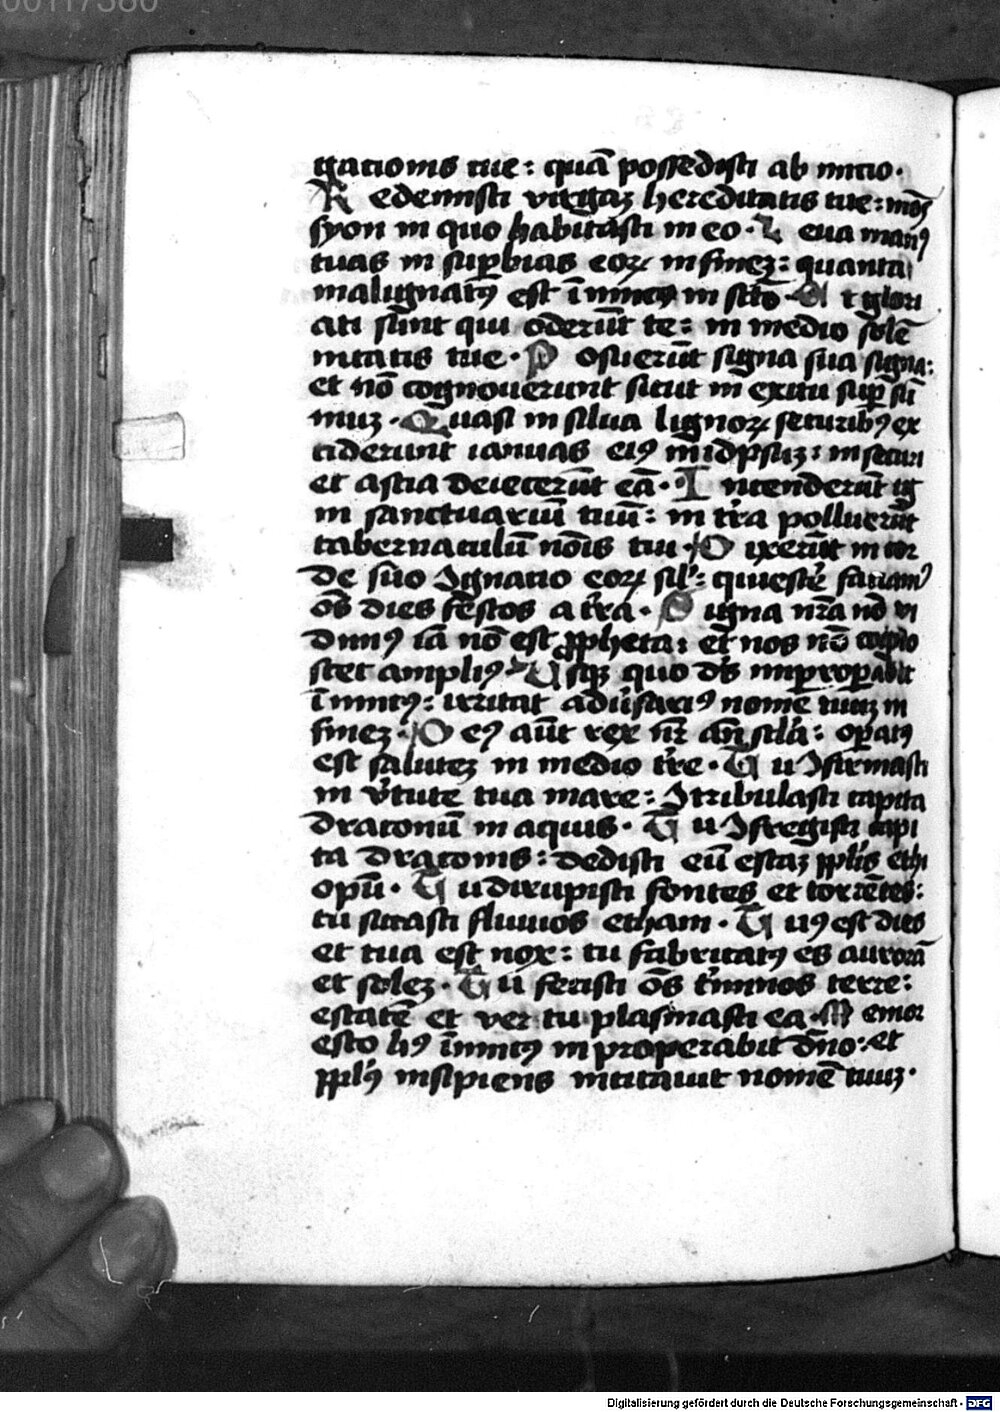 00117380
gationis tue: quā possedisti ab initio.
Redemisti virgaꝫ hereditatis tue: mōs
syon in quo habitasti in eo. Leua manꝰ
tuas in suꝑbias eoꝝ in fineꝫ: quanta
malignatꝰ est īimicꝰ in scō. Et glori
ati sunt qui oderūt te: in medio solē
nitatis tue. Posuerūt signa sua signa:
et nō cognouerunt sicut in exitu suꝑ sū
muꝫ. Quasi in silua lignoꝝ securibꝰ ex
ciderunt ianuas eiꝰ in idpsuꝫ: in securi
et ascia deiecerūt eā. Incenderūt ig
in sanctuariū tuū: in tr̄a polluerūt
tabernaculū nōis tui. Dixerūt in cor
de suo ꝯgnatio eoꝝ sil̄: quiescē faciamꝰ
oēs dies festos a tr̄a. Signa nr̄a nō vi
dimꝰ iā nō est ꝓpheta: et nos nō cogno
scet ampliꝰ. Usqꝫ quo dꝰs imꝑroꝑabit
īimicꝰ: irritat aduʼsariꝰ nomē tuuꝫ in
fineꝫ. Deꝰ aūt rex nr̄ an̄ scl̄a: oꝑatꝰ
est saluteꝫ in medio tr̄e. Tu ꝯfirmasti
in vʼtute tua mare: ꝯtribulasti capita
draconū in aquis. Tu ꝯfregisti capi
ta draconis: dedisti eū escaꝫ ppl̄is ethi
opū. Tu dirupisti fontes et torrētes:
tu siccasti fluuios etham. Tuꝰ est dies
et tua est nox: tu fabricatꝰ es aurorā
et soleꝫ. Tu fecisti oēs tʼminos terre:
estatē et ver tu plasmasti ea. Memor
esto hiꝰ īimicꝰ inproperabit dn̄o: et
ppl̄ꝰ insipiens incitauit nomē tuuꝫ.
Digitalisierung gefördert durch die Deutsche Forschungsgemeinschaft - DFG